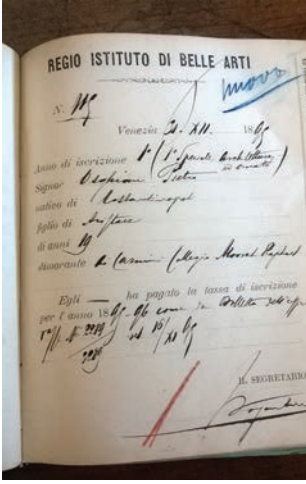 REGIO ISTITUTO DI BELLE ARTI
nuovo
N. 119
Venezia 21. XII. 1895
Anno di iscrizione 1° (1° Speciale Architettura
Signor Pietro
nativo di Costantinopoli
figlio di
di anni 19
dimorante a Carmini (Collegio Moorat Raphael
Egli — ha pagato la tassa di iscrizione
per l'anno 1895-96 come da Bolletta dell'
N° 2989 del 15/XI 95
2989
IL SEGRETARIO